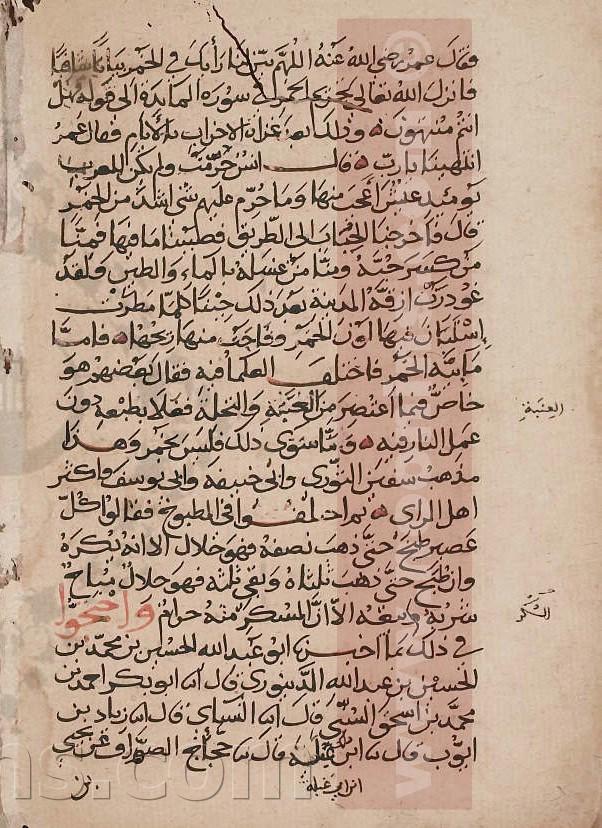 فقال عمر رضي الله عنه اللهم بين لنا رأيك في الخمر بيانا شافيا
فانزل الله تعالى تحريم الخمر في سورة المايدة الى قوله فهل
انتم منتهون وذلك بعد غزاة الاحزاب بالايام فقال عمر
انتهينا يارب قال انس حرمت ولم يكن للعرب
يومئذ عيش اعجب منها وما حرم عليهم شي اشد من الخمر
قال فاخرجنا الحباب الى الطريق فصببنا ما فيها فمنا
من كسر حبه ومنا من غسله بالماء والطين ولقد
غودرت ازقة المدينة بعد ذلك حينا كلما مطرت
استبان فيها لون الخمر وفاحت منها ريحها فاما
مايية الخمر فاختلف العلما فيه فقال بعضهم هو
خاص فيما اعتصر من العنبة والنخلة فغلا بطبعه دون
عمل النار فيه وما سوى ذلك فليس بخمر وهذا
مذهب سفين الثوري وابي حنيفة وابي يوسف واكثر
اهل الراى ثم اختلفوا في المطبوخ فقالوا كل
عصير طبخ حتى ذهب نصفه فهو حلال الا انه يكره
وان طبخ حتى ذهب ثلثاه وبقي ثلثه فهو حلال مباح
شربه وبيعه الا ان المسكر منه حرام واحتجوا
في ذلك بما اخبرنا ابو عبدالله الحسين بن محمد بن
الحسين بن عبد الله الدينوري قال انا ابو بكر احمد بن
محمد بن اسحق السني قال انا النسائي قال انا زياد بن
ايوب قال نا ابن علية قال نا حجاج الصواف عن يحيى
العنبة
السكر